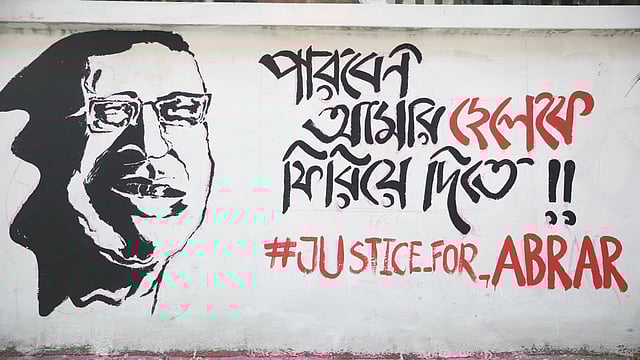 পারবেন
আমার ছেলেকে
ফিরিয়ে দিতে !!
#JUSTICE_FOR_ABRAR